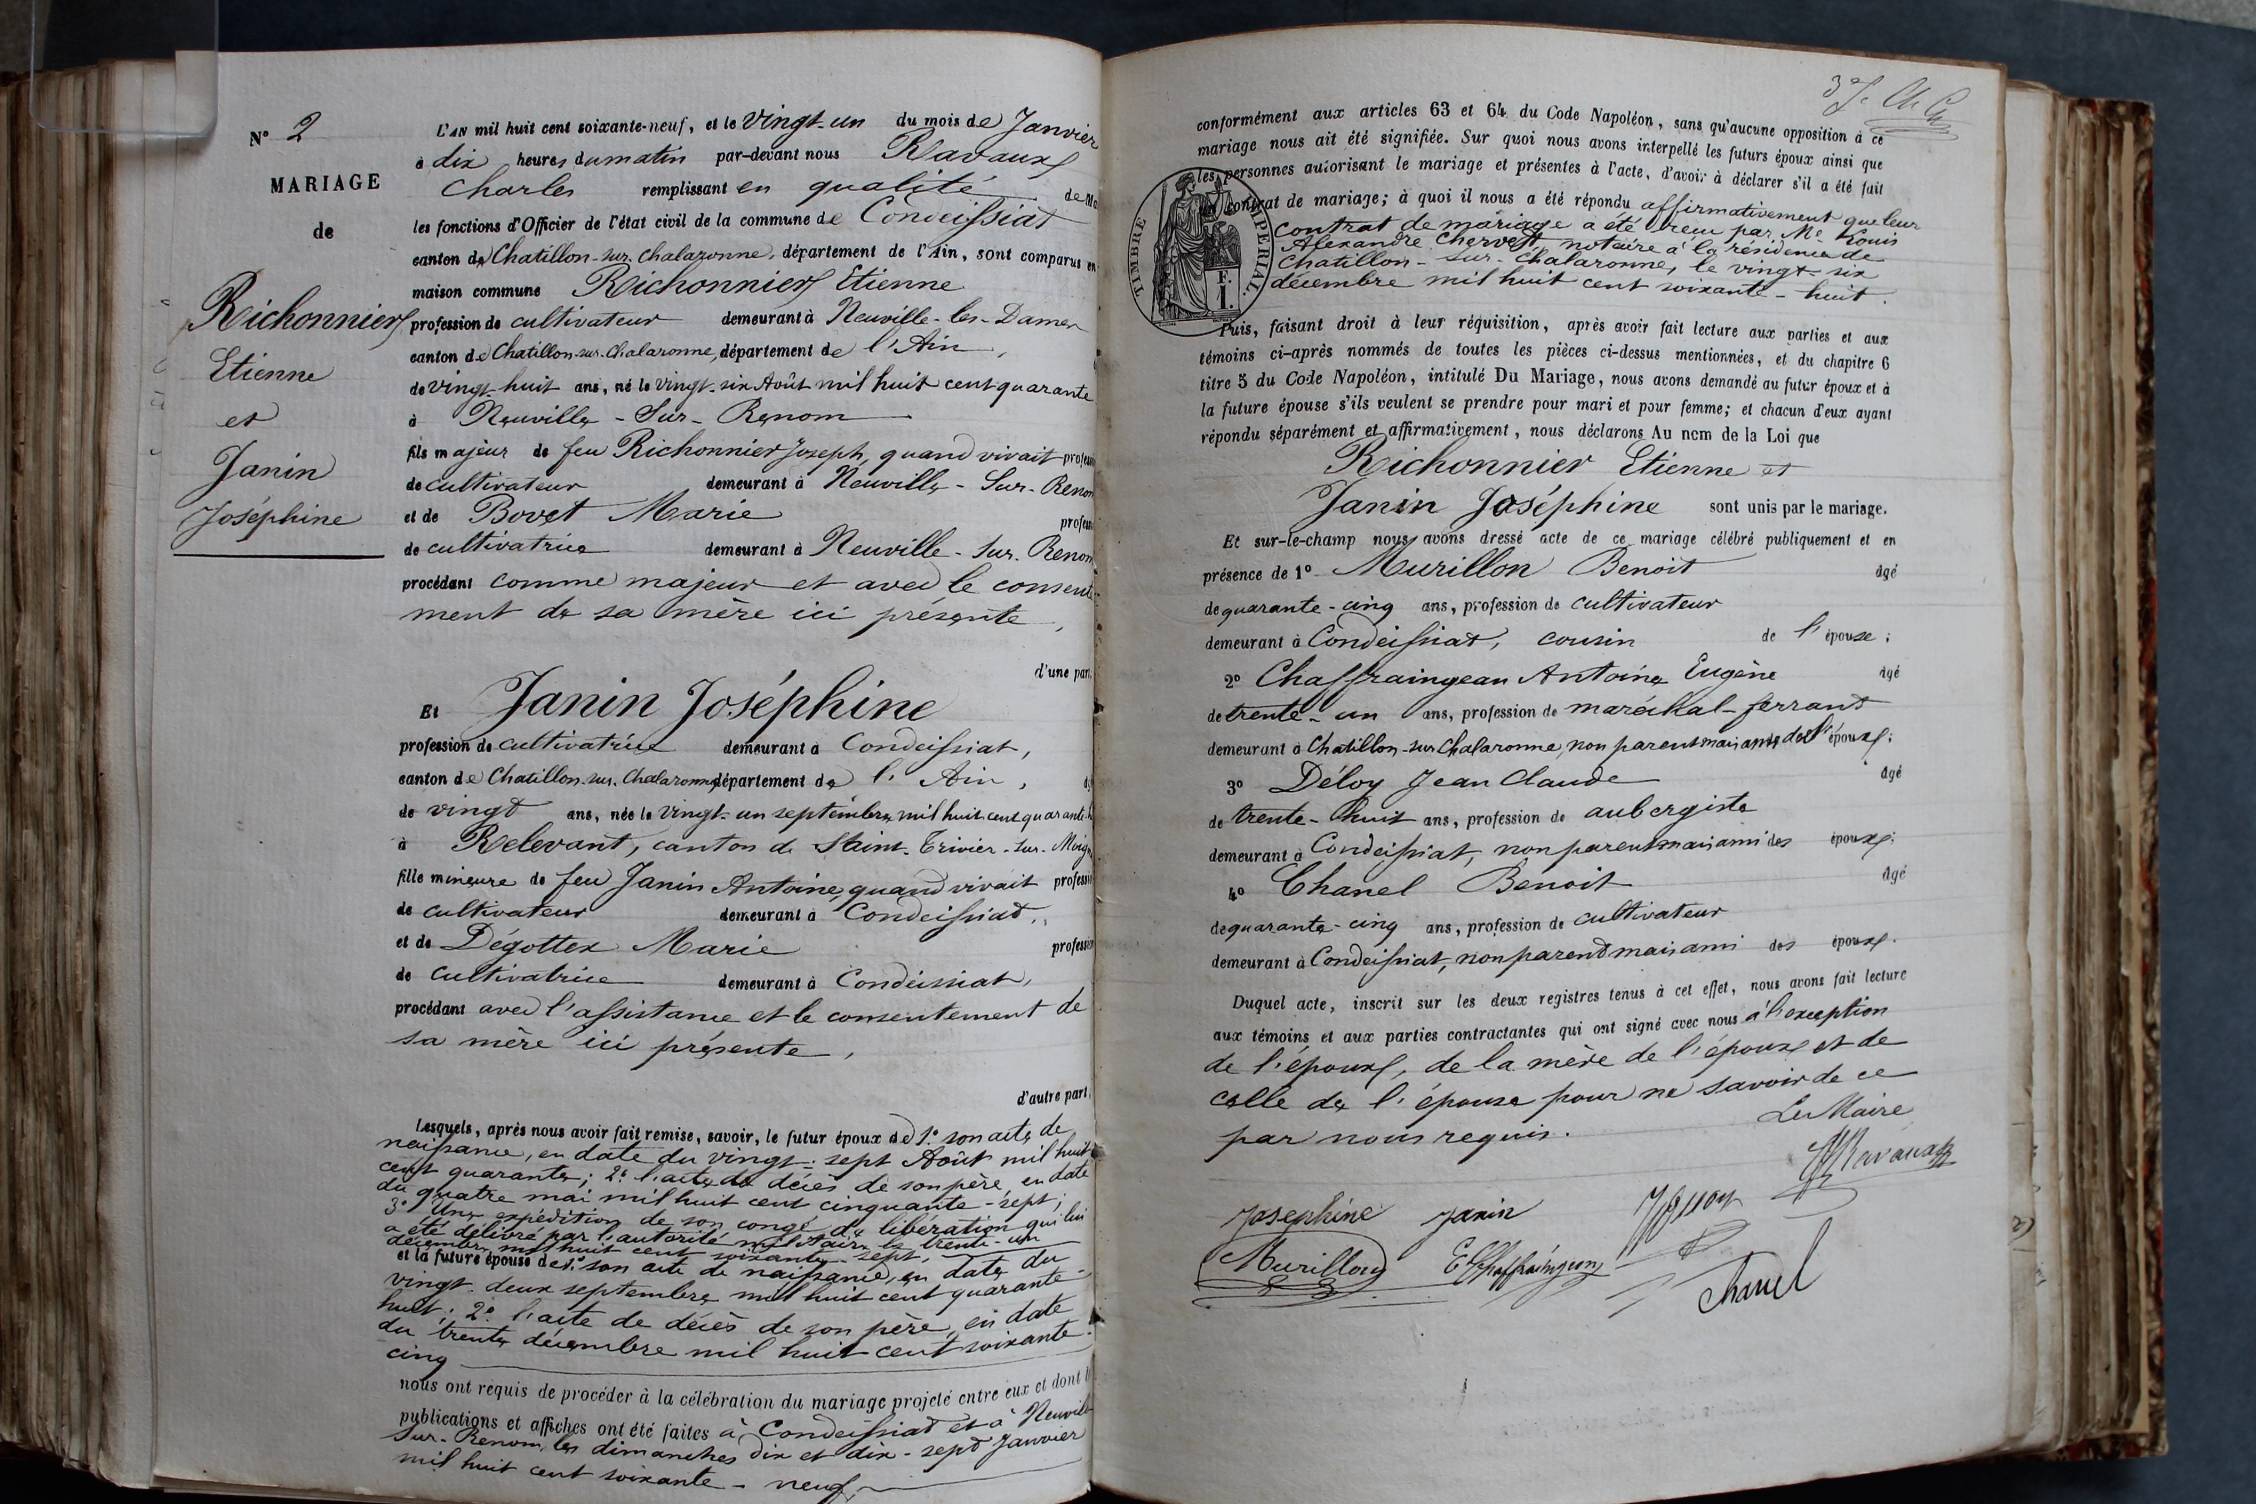 N° 2
MARIAGE
de
Richonnier
Etienne
et
Janin
Joséphine
L'AN mil huit cent soixante-neuf, et le vingt-un du mois de Janvier
à dix heures du matin par-devant nous Ravaux
Charles remplissant en qualité de Ma
les fonctions d'Officier de l'état civil de la commune de Condeissiat
canton de Chatillon-sur-Chalaronne, département de l'Ain, sont comparus en
maison commune Richonnier Etienne
profession de cultivateur demeurant à Neuville-les-Dames
canton de Chatillon-sur-Chalaronne, département de l'Ain,
de vingt-huit ans, né le vingt-six Août mil huit cent quarante
à Neuville-Sur-Renom
fils majeur de feu Richonnier Joseph, quand vivait profess
de cultivateur demeurant à Neuville-Sur-Renom
et de Bovet Marie profess
de cultivatrice demeurant à Neuville-Sur-Renom
procédant comme majeur et avec le consente
ment de sa mère ici présente,
d'une part.
Et Janin Joséphine
profession de cultivatrice demeurant à Condeissiat,
canton de Chatillon-sur-Chalaronne, département de l'Ain,
de vingt ans, née le vingt-un septembre mil huit cent quarante-h
à Relevant, canton de Saint-Trivier-sur-Moign
fille mineure de feu Janin Antoine, quand vivait profession
de cultivateur demeurant à Condeissiat,
et de Dégottex Marie profession
de cultivatrice demeurant à Condeissiat,
procédant avec l'assistance et le consentement de
sa mère ici présente,
d'autre part,
Lesquels, après nous avoir fait remise, savoir, le futur époux de 1° son acte de
naissance, en date du vingt-sept Août mil huit
cent quarante; 2° l'acte de décès de son père, en date
du quatre mai mil huit cent cinquante-sept;
3° Une expédition de son congé de libération qui lui
a été délivré par l'autorité militaire le trente-un
décembre mil huit cent soixante-sept.
et la future épouse de 1° son acte de naissance, en date du
vingt-deux septembre mil huit cent quarante-
huit; 2° l'acte de décès de son père, en date
du trente décembre mil huit cent soixante-
cinq
nous ont requis de procéder à la célébration du mariage projeté entre eux et dont l
publications et affiches ont été faites à Condeissiat et à Neuville
Sur-Renom, les dimanches dix et dix-sept Janvier
mil huit cent soixante-neuf,
conformément aux articles 63 et 64 du Code Napoléon, sans qu'aucune opposition à ce
mariage nous ait été signifiée. Sur quoi nous avons interpellé les futurs époux ainsi que
les personnes autorisant le mariage et présentes à l'acte, d'avoir à déclarer s'il a été fait
un contrat de mariage; à quoi il nous a été répondu affirmativement que leur
contrat de mariage a été reçu par Me Louis
Alexandre Chervet, notaire à la résidence de
Chatillon-sur-Chalaronne, le vingt-six
décembre mil huit cent soixante-huit.
TIMBRE IMPERIAL
F.
I.
Puis, faisant droit à leur réquisition, après avoir fait lecture aux parties et aux
témoins ci-après nommés de toutes les pièces ci-dessus mentionnées, et du chapitre 6
titre 5 du Code Napoléon, intitulé Du Mariage, nous avons demandé au futur époux et à
la future épouse s'ils veulent se prendre pour mari et pour femme; et chacun d'eux ayant
répondu séparément et affirmativement, nous déclarons Au nom de la Loi que
Richonnier Etienne et
Janin Joséphine sont unis par le mariage.
Et sur-le-champ nous avons dressé acte de ce mariage célébré publiquement et en
présence de 1° Murillon Benoit âgé
de quarante-cinq ans, profession de cultivateur
demeurant à Condeissiat, cousin de l'épouse;
2° Chaffraingeau Antoine Eugène âgé
de trente-un ans, profession de maréchal-ferrant
demeurant à Chatillon-sur-Chalaronne, non parent mais ami de l'époux;
3° Déloy Jean Claude âgé
de trente-huit ans, profession de aubergiste
demeurant à Condeissiat, non parent mais ami des époux;
4° Chanel Benoit âgé
de quarante-cinq ans, profession de cultivateur
demeurant à Condeissiat, non parent mais ami des époux.
Duquel acte, inscrit sur les deux registres tenus à cet effet, nous avons fait lecture
aux témoins et aux parties contractantes qui ont signé avec nous à l'exception
de l'époux, de la mère de l'époux et de
celle de l'épouse pour ne savoir de ce
par nous requis.
Le Maire
Ravaux
Josephine Janin
Murillon E Chaffraingeau
Chanel